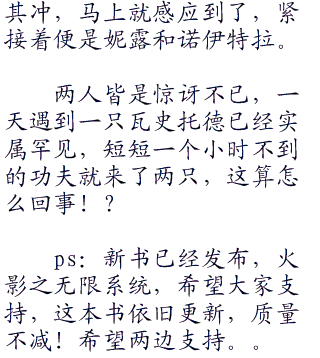 其冲，马上就感应到了，紧
接着便是妮露和诺伊特拉。
两人皆是惊讶不已，一
天遇到一只瓦史托德已经实
属罕见，短短一个小时不到
的功夫就来了两只，这算怎
么回事！？
ps：新书已经发布，火
影之无限系统，希望大家支
持，这本书依旧更新，质量
不减！希望两边支持。。